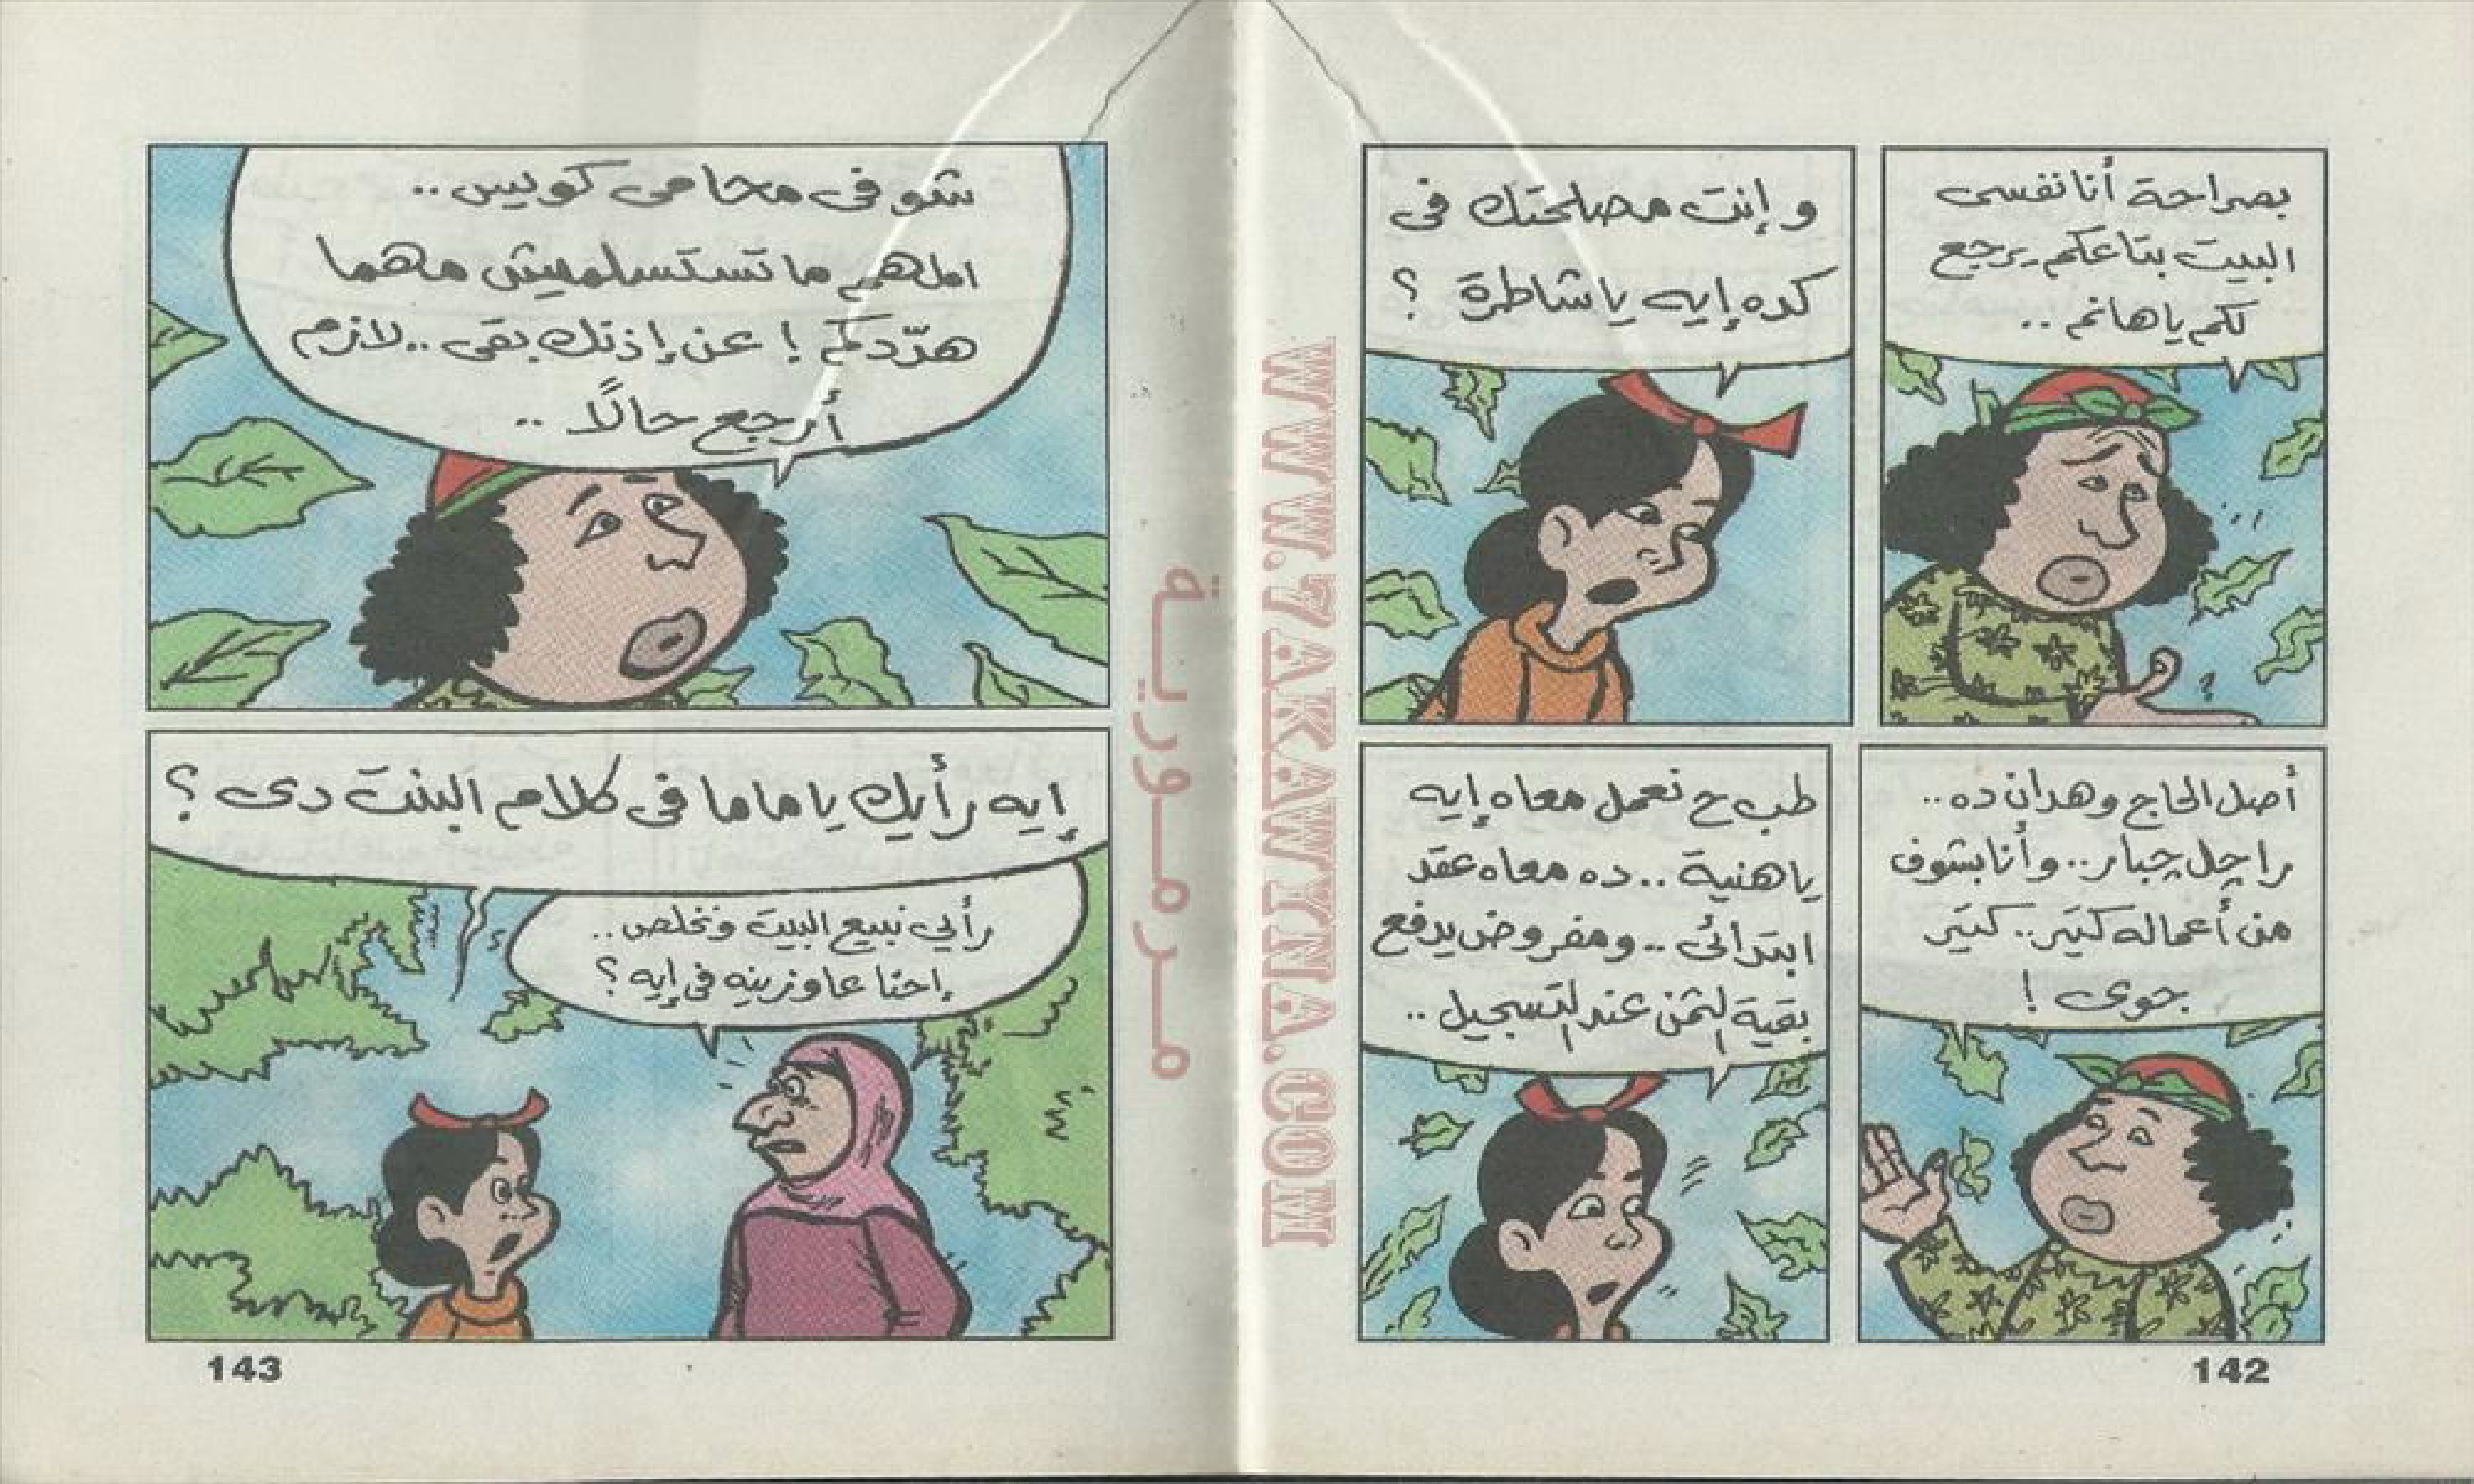 بصراحة أنا نفسى
البيت بتاعكم يرجع
لكم يا هانم ..
و إنت مصلحتك فى
كده إيه يا شاطرة ؟
أصل الحاج وهدان ده ..
راجل جبار .. وأنا بشوف
من أعماله كتير .. كتير
جوى !
طب ح نعمل معاه إيه
يا هنية .. ده معاه عقد
ابتدائى .. ومفروض يدفع
بقية الثمن عند التسجيل ..
142
WWW.7AKAWYNA.COM
مرمورية
شوفى محامى كويس ..
المهم ما تستسلميش مهما
هدّدكم ! عن إذنك بقى .. لازم
أرجع حالًا ..
إيه رأيك يا ماما فى كلام البنت دى ؟
رأيي نبيع البيت ونخلص ..
إحنا عاوزينه فى إيه ؟
143